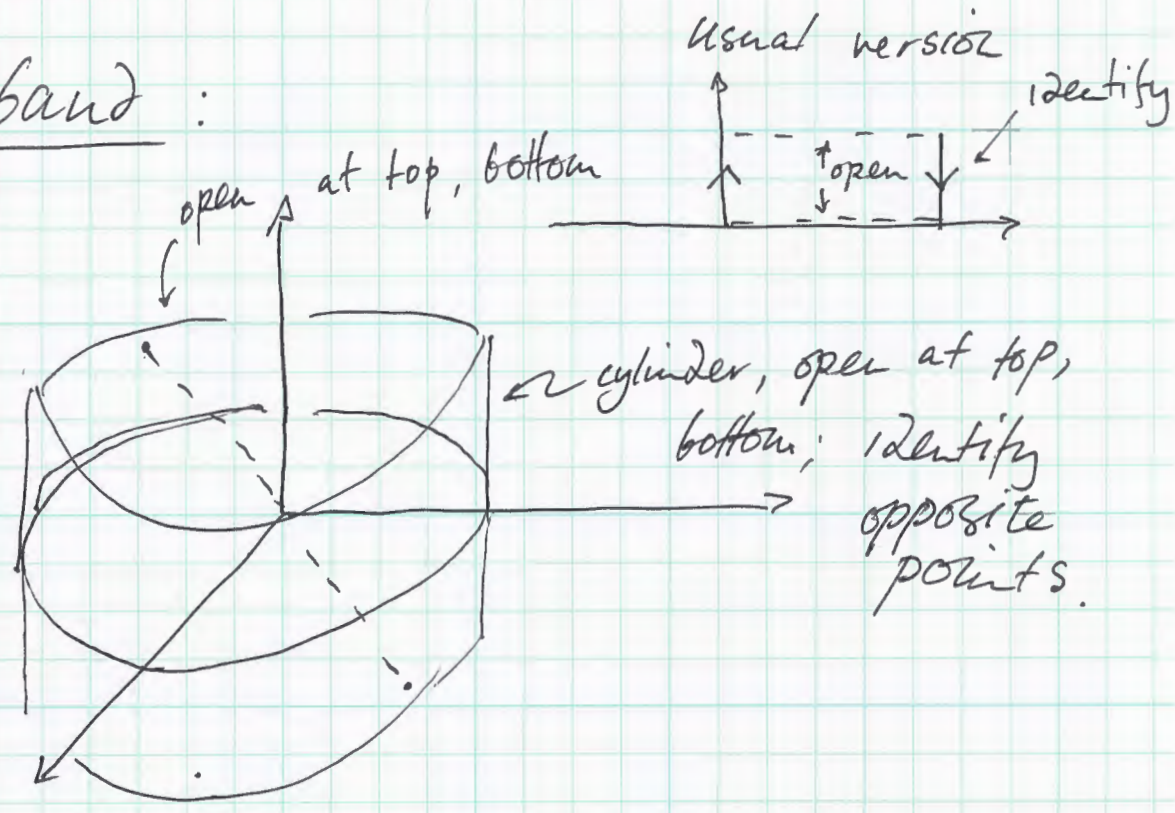 band :
usual version
identify
open
open at top, bottom
cylinder, open at top,
bottom; identify
opposite
points.